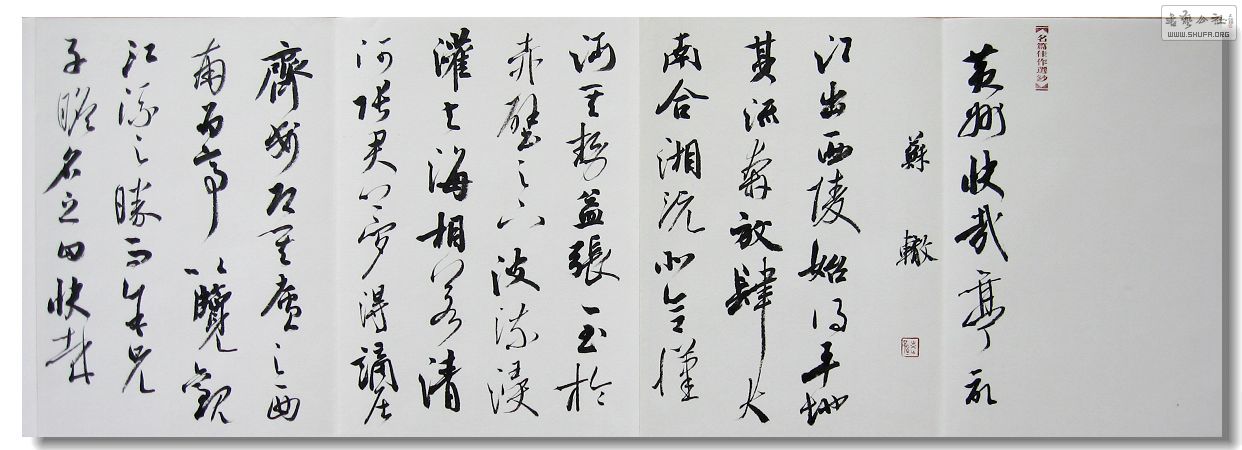 書藝公社
WWW.SHUFA.ORG
名篇佳作選鈔
黄州快哉亭記
蘇轍
江出西陵始得平地
其流奔放肆大
南合湘沅北合漢
沔其勢益張至於
赤壁之下波流浸
灌与海相若清
河張君夢得謫居
齊安即其廬之西
南為亭以覽觀
江流之勝而余兄
子瞻名之曰快哉